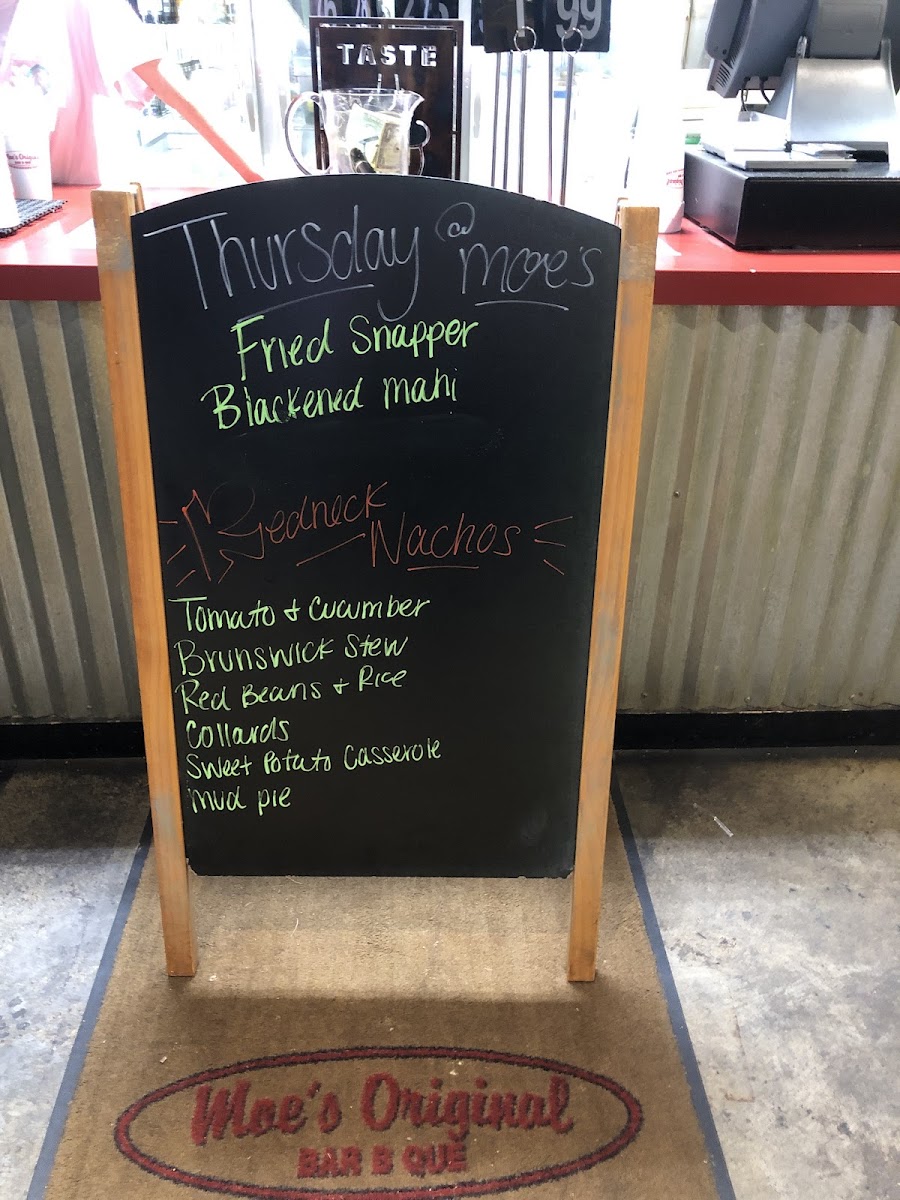 TASTE
99
Thursday @ moe's
Fried Snapper
Blackened mahi
Redneck
Nachos
Tomato + Cucumber
Brunswick Stew
Red Beans + Rice
Collards
Sweet Potato Casserole
mud pie
Moe's Original
BAR B QUE